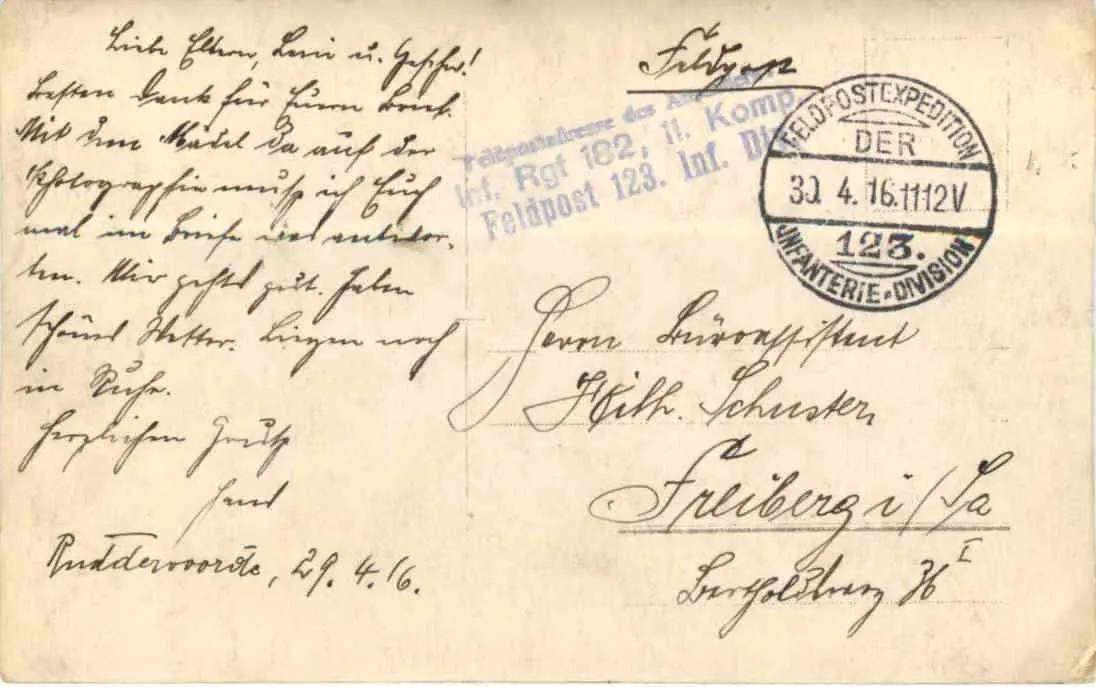 Liebe Eltern, Leni u. Geschw!
Besten Dank für Euern Brief.
Mit dem Mädel da auf der
Photographie muß ich Euch
mal im Briefe was antwor-
ten. Mir gehts gut. Haben
schönes Wetter. Liegen noch
in Ruhe.
Herzlichen Gruß
Hans
Ruddervoorde, 29. 4. 16.
Feldpost
Feldpostadresse des
Inf. Rgt 182, 11. Komp.
Feldpost 123. Inf. Div
FELDPOSTEXPEDITION
DER
30. 4. 16. 11-12V
123.
INFANTERIE-DIVISION
Herrn Büroassistent
Wilh. Schuster,
Freiberg i/Sa
36 I